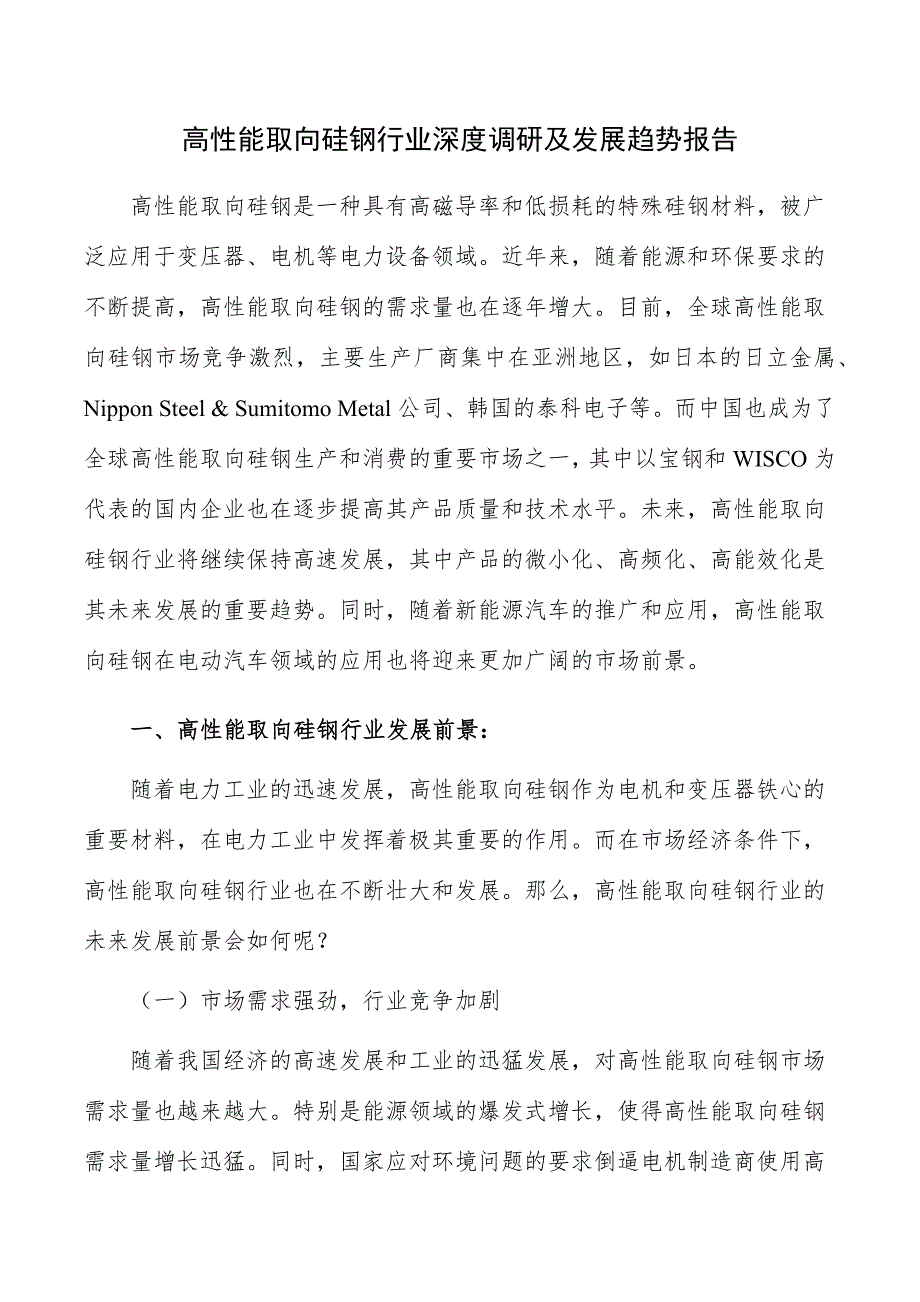 高性能取向硅钢行业深度调研及发展趋势报告
高性能取向硅钢是一种具有高磁导率和低损耗的特殊硅钢材料，被广
泛应用于变压器、电机等电力设备领域。近年来，随着能源和环保要求的
不断提高，高性能取向硅钢的需求量也在逐年增大。目前，全球高性能取
向硅钢市场竞争激烈，主要生产厂商集中在亚洲地区，如日本的日立金属、
Nippon Steel & Sumitomo Metal 公司、韩国的泰科电子等。而中国也成为了
全球高性能取向硅钢生产和消费的重要市场之一，其中以宝钢和 WISCO 为
代表的国内企业也在逐步提高其产品质量和技术水平。未来，高性能取向
硅钢行业将继续保持高速发展，其中产品的微小化、高频化、高能效化是
其未来发展的重要趋势。同时，随着新能源汽车的推广和应用，高性能取
向硅钢在电动汽车领域的应用也将迎来更加广阔的市场前景。
一、高性能取向硅钢行业发展前景：
随着电力工业的迅速发展，高性能取向硅钢作为电机和变压器铁心的
重要材料，在电力工业中发挥着极其重要的作用。而在市场经济条件下，
高性能取向硅钢行业也在不断壮大和发展。那么，高性能取向硅钢行业的
未来发展前景会如何呢？
（一）市场需求强劲，行业竞争加剧
随着我国经济的高速发展和工业的迅猛发展，对高性能取向硅钢市场
需求量也越来越大。特别是能源领域的爆发式增长，使得高性能取向硅钢
需求量增长迅猛。同时，国家应对环境问题的要求倒逼电机制造商使用高